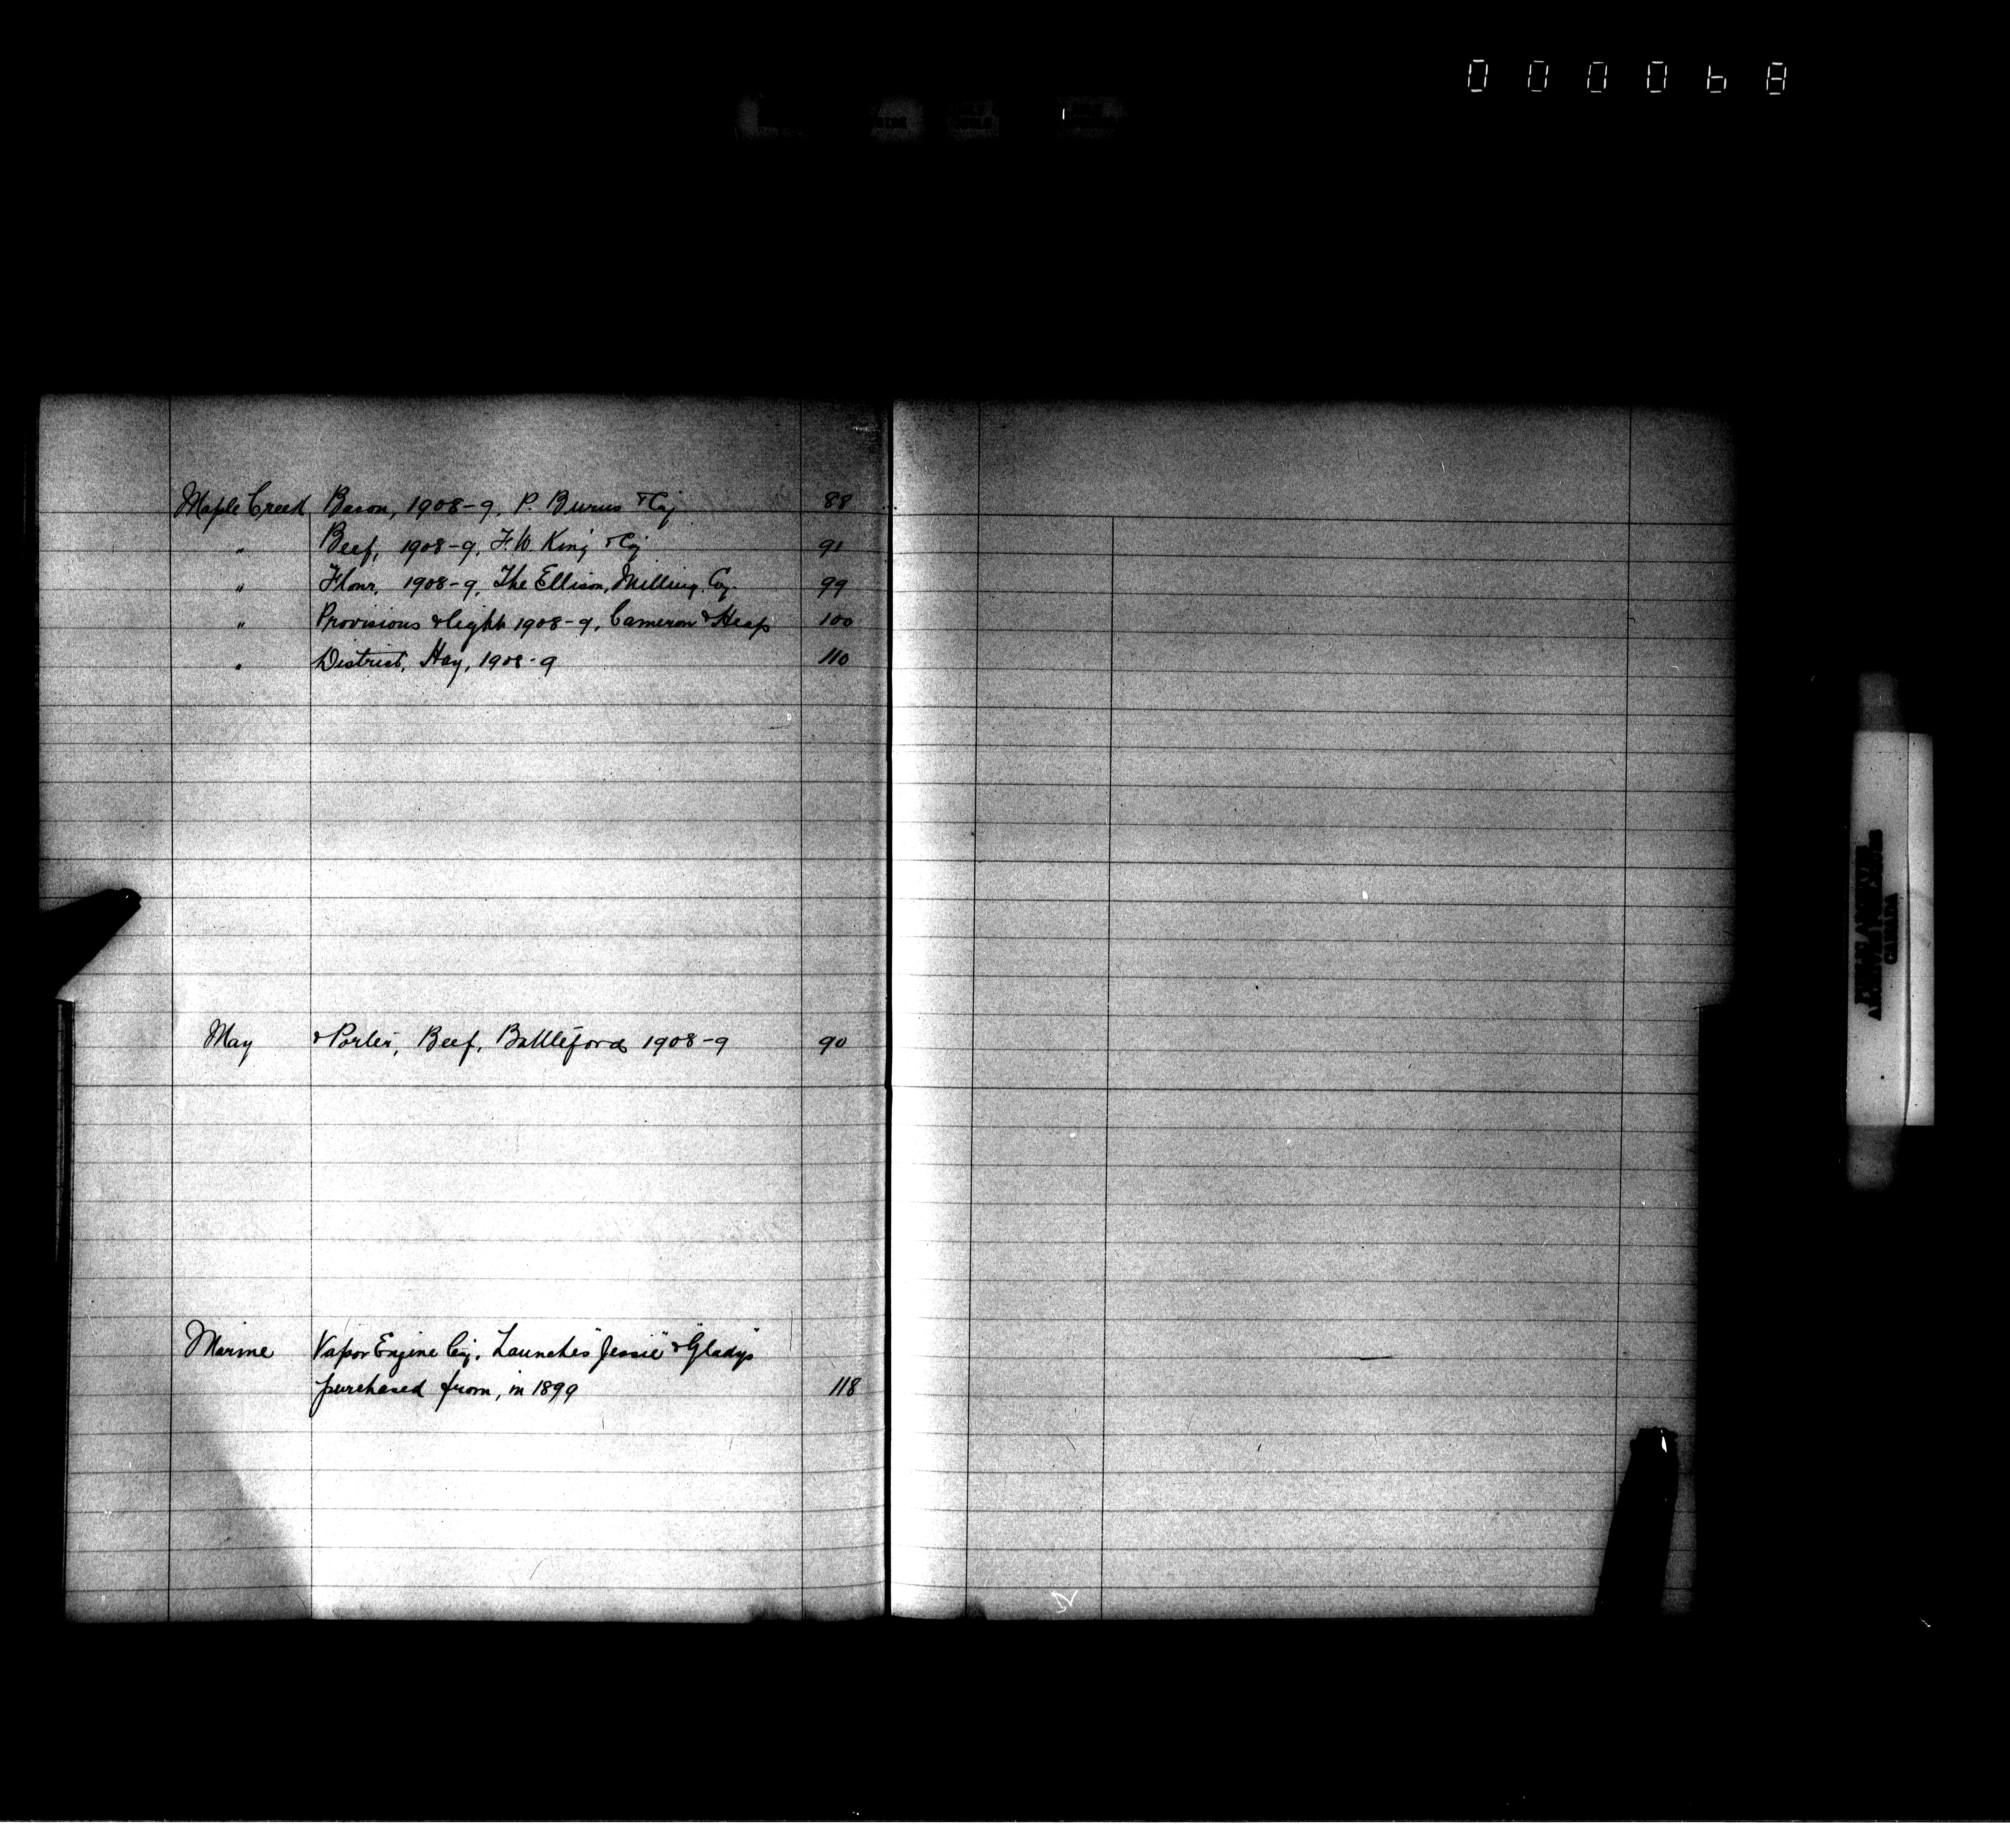 000068
Maple Creek Bacon, 1908-9, P. Burns & Coy 88
" Beef, 1908-9, F.W. King & Coy 91
" Flour, 1908-9, The Ellison Milling Coy. 99
" Provisions & light 1908-9, Cameron & Heap 100
" District, Hay, 1908-9 110
May & Porter, Beef, Battleford 1908-9 90
Marine Vapor Engine Coy. Launches "Jessie" & "Gladys"
purchased from, in 1899 118